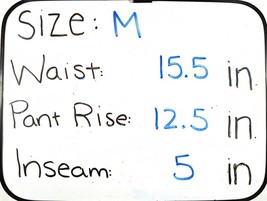 Size: M
Waist: 15.5 in.
Pant Rise: 12.5 in.
Inseam: 5 in